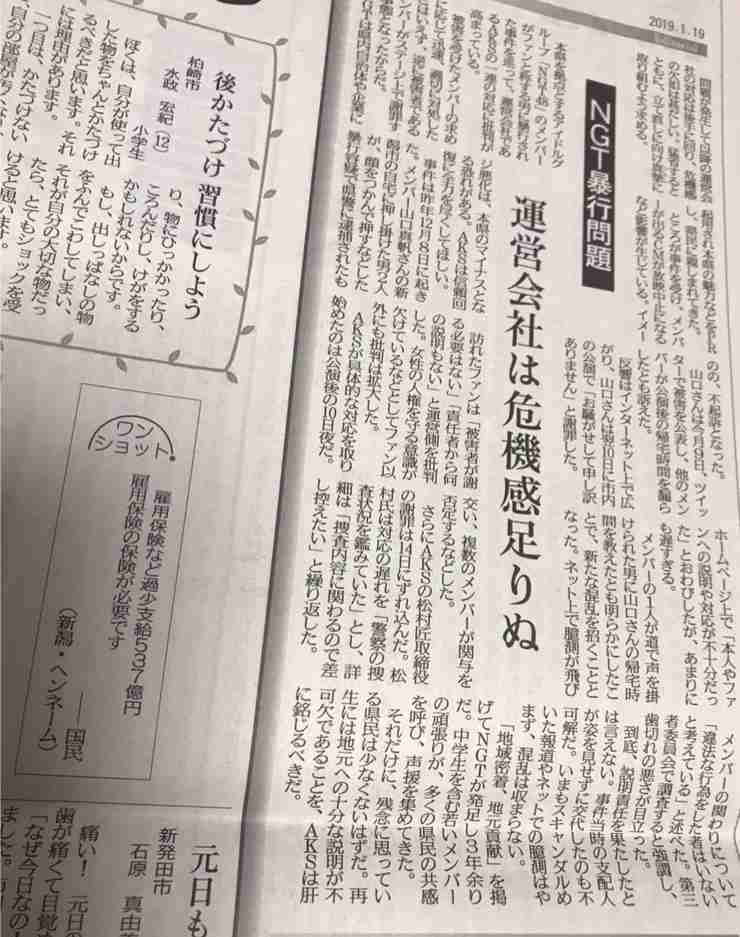 2019.1.19
NGT暴行問題
運営会社は危機感足りぬ
問題が発生して以降の運営会
社の対応は後手に回り、危機感
の欠如は甚だしい。猛省すると
ともに、立て直しに向け真摯に
取り組むよう求める。
本県を拠点とするアイドルグ
ループ「NGT48」のメンバー
がファンと称する男に暴行され
た事件を巡って、運営会社であ
るAKSの一連の対応に批判が
高まっている。
被害を受けたメンバーの求め
に応じて迅速、適切に対処した
とはいえず、逆に被害者である
メンバーがステージ上で謝罪す
る事態となったからだ。
NGTは県内自治体や企業に
起用され本県の魅力などをPR
し、県民に親しまれてきた。
ところが事件を受け、メンバ
ーが出るCMが放映中止になる
など影響が生じている。イメー
ジ悪化は、本県のマイナスとな
る恐れがある。AKSは信頼回
復に全力を尽くしてほしい。
事件は昨年12月8日に起き
た。メンバー山口真帆さんの新
潟市の自宅に押し掛けた男2人
が、顔をつかんで押すなどした
暴行容疑で県警に逮捕されたも
のの、不起訴となった。
山口さんは今月9日、ツイッ
ターで被害を公表し、他のメン
バーが公演後の帰宅時間を漏ら
したとも訴えた。
反響はインターネット上で広
がり、山口さんは翌10日に市内
の公演で「お騒がせして申し訳
ありません」と謝罪した。
訪れたファンは「被害者が謝
る必要はない」「責任者から何
の説明もない」と運営側を批判
した。女性の人権を守る意識が
欠けているなどとしてファン以
外にも批判は拡大した。
AKSが具体的な対応を取り
始めたのは公演後の10日夜だ。
ホームページ上で「本人やファ
ンへの説明や対応が不十分だっ
た」とおわびしたが、あまりに
も遅すぎる。
メンバーの1人が道で声を掛
けられた男に山口さんの帰宅時
間を教えたとも明らかにしたこ
とで、新たな混乱を招くことと
なった。ネット上で臆測が飛び
交い、複数のメンバーが関与を
否定するなどした。
さらにAKSの松村匠取締役
の謝罪は14日にずれ込んだ。松
村氏は対応の遅れを「警察の捜
査状況を鑑みていた」とし、詳
細は「捜査内容に関わるので差
し控えたい」と繰り返した。
メンバーの関わりについて
「違法な行為をした者はいない
と考えている」と述べた。第三
者委員会で調査すると強調し、
歯切れの悪さが目立った。
到底、説明責任を果たしたと
は言えない。事件当時の支配人
が姿を見せずに交代したのも不
可解だ。いまもスキャンダルめ
いた報道やネットでの臆測はや
まず、混乱は収まらない。
「地域密着、地元貢献」を掲
げてNGTが発足し3年余り
だ。中学生を含む若いメンバー
の頑張りが、多くの県民の共感
を呼び、声援を集めてきた。
それだけに、残念に思ってい
る県民は少なくないはずだ。再
生には地元への十分な説明が不
可欠であることを、AKSは肝
に銘じるべきだ。
後かたづけ 習慣にしよう
柏崎市
水政 宏紀
小学生
(12)
ぼくは、自分が使って出
した物をちゃんとかたづけ
るべきだと思います。それ
には理由があります。
一つ目は、かたづけない
と自分の部屋が
り、物にひっかかったり、
ころんだりし、けがをする
かもしれないからです。
もし、出しっぱなしの物
をふんでこわしてしまい、
それが自分の大切な物だっ
たら、とてもショックを受
けると思います。
ワンショット
雇用保険など過少支給537億円
雇用保険の保険が必要です
――国民
(新潟・ヘンネーム)
元日も
新発田市
石原 真由美
痛い! 元日の
歯が痛くて目覚め
「なぜ今日なの!
ました。